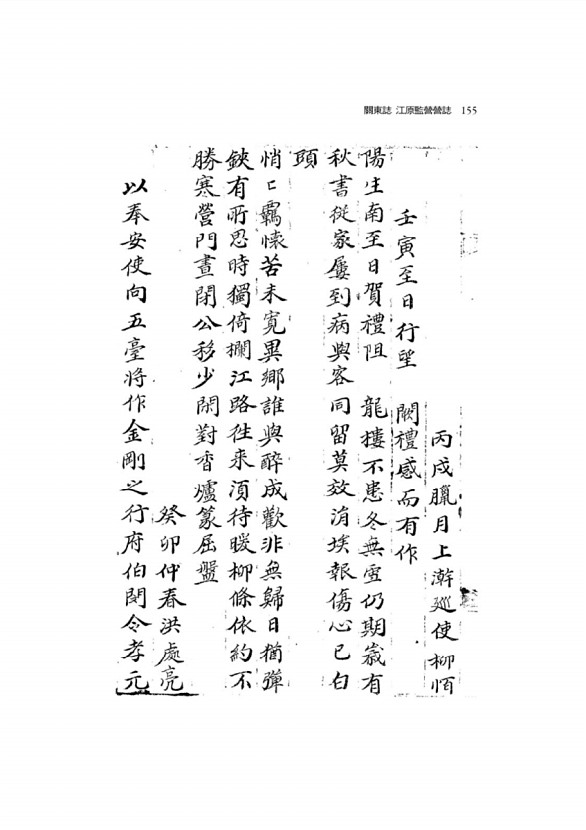 關東誌 江原監營營誌 155
丙戌臘月上澣廵使柳
壬寅至日行望 闕禮感而有作
陽生南至日賀禮阻 龍樓不患冬無雪仍期歲有
秋書從家屢到病與客同留莫效涓埃報傷心已白
頭
悄〻羈懷苦未寬異鄉誰與醉成歡非無歸日猶彈
鋏有所思時獨倚欄江路往來須待暖柳條依約不
勝寒營門晝閉公移少閑對香爐篆屈盤
癸卯仲春洪處亮
以奉安使向五臺將作金剛之行府伯閔令孝元